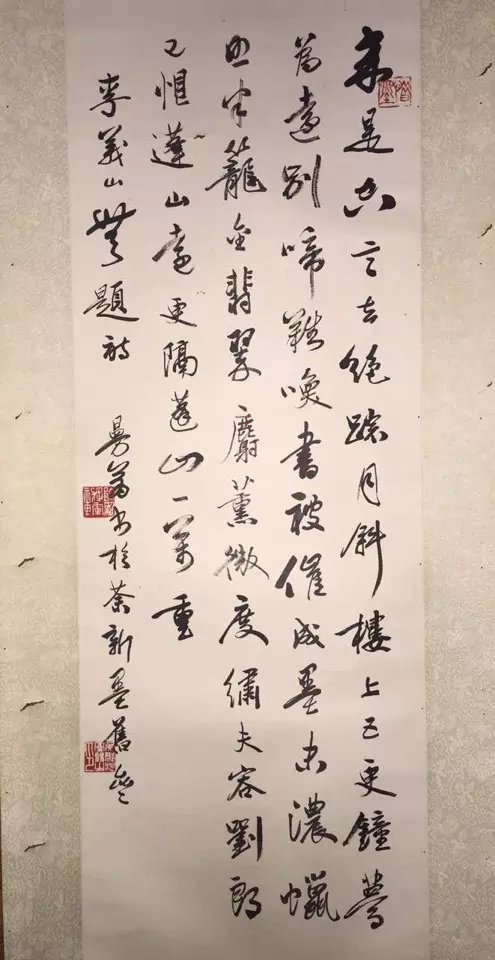 來是空言去絕踪月斜樓上五更鐘夢
為遠別啼難喚書被催成墨未濃蠟
照半籠金翡翠麝薰微度繡夫容劉郎
已恨蓬山遠更隔蓬山一萬重
李義山無題詩 曼翁書於茶新墨舊